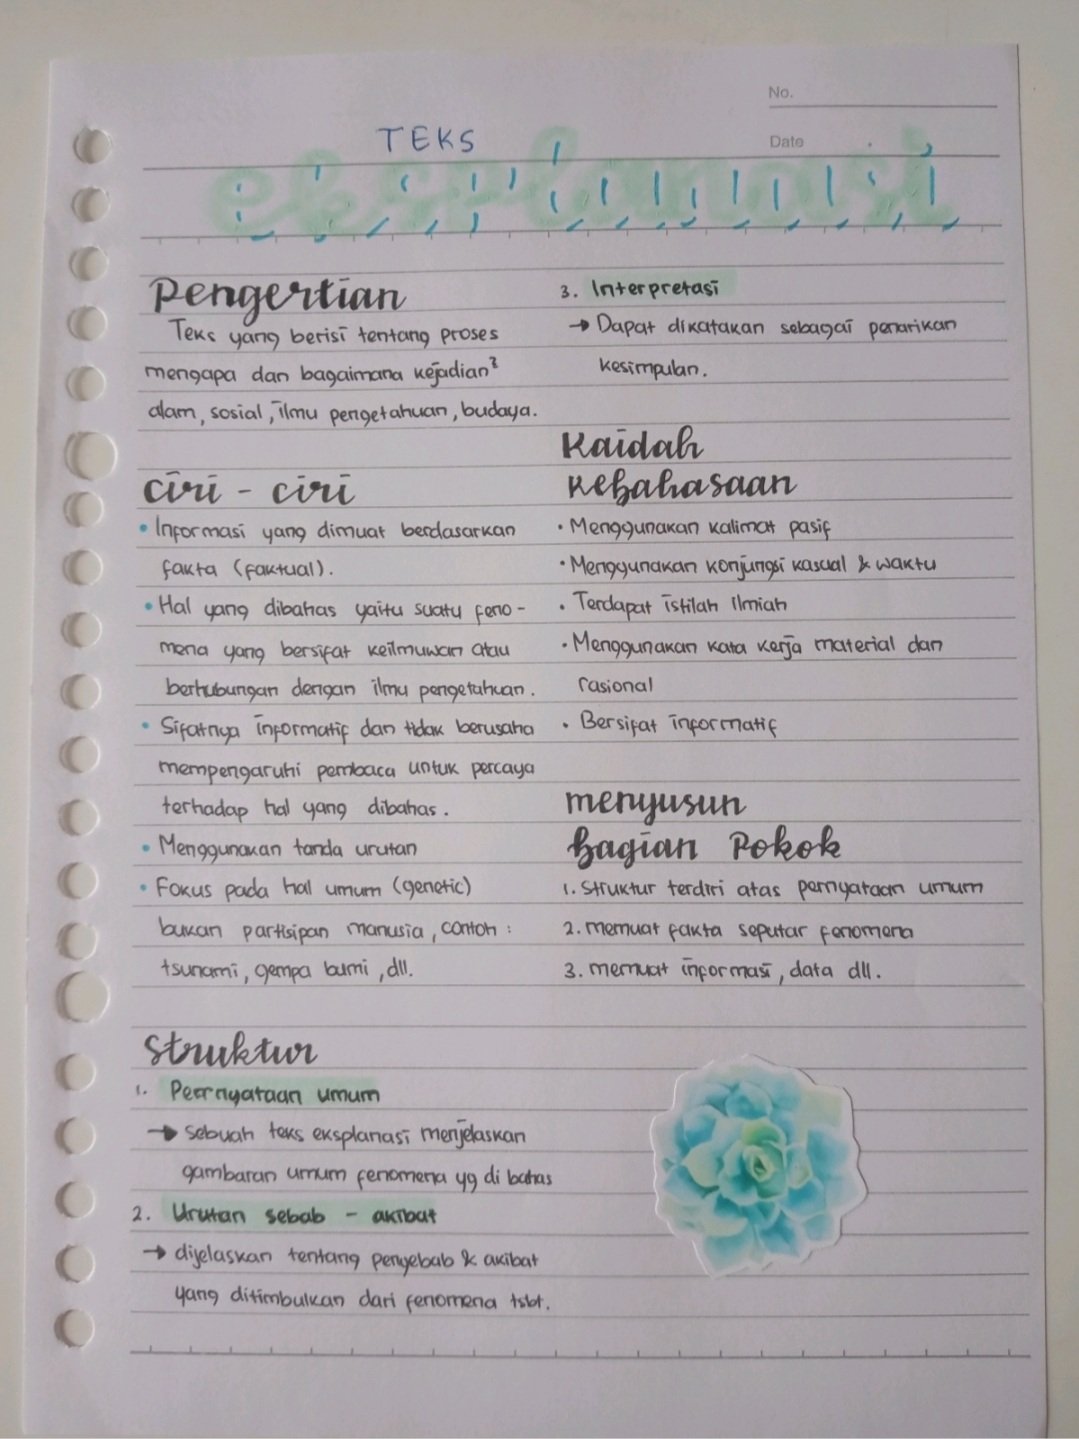 No.
Date
TEKS
eksplanasi
Pengertian
Teks yang berisi tentang proses
mengapa dan bagaimana kejadian²
alam, sosial, ilmu pengetahuan, budaya.
ciri - ciri
• Informasi yang dimuat berdasarkan
fakta (faktual).
• Hal yang dibahas yaitu suatu feno-
mena yang bersifat keilmuwan atau
berhubungan dengan ilmu pengetahuan.
• Sifatnya informatif dan tidak berusaha
mempengaruhi pembaca untuk percaya
terhadap hal yang dibahas.
• Menggunakan tanda urutan
• Fokus pada hal umum (genetic)
bukan partisipan manusia, contoh :
tsunami, gempa bumi, dll.
struktur
1. Pernyataan umum
→ sebuah teks eksplanasi menjelaskan
gambaran umum fenomena yg di bahas
2. Urutan sebab - akibat
→ dijelaskan tentang penyebab & akibat
yang ditimbulkan dari fenomena tsbt.
3. Interpretasi
→ Dapat dikatakan sebagai penarikan
kesimpulan.
Kaidah
kebahasaan
• Menggunakan kalimat pasif
• Menggunakan konjungsi kasual & waktu
• Terdapat istilah ilmiah
• Menggunakan kata kerja material dan
rasional
• Bersifat informatif
menyusun
bagian Pokok
1. struktur terdiri atas pernyataan umum
2. memuat fakta seputar fenomena
3. memuat informasi, data dll.